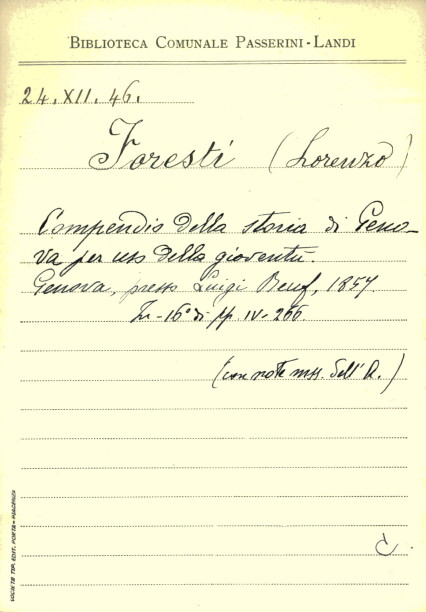 BIBLIOTECA COMUNALE PASSERINI-LANDI
24.XII.46.
Foresti (Lorenzo)
Compendio della storia di Geno-
va per uso della gioventù.
Genova, presso Luigi Beuf, 1857
In-16° di pp. IV-266
(con note mss. dell'A.)
C.
SOCIETÀ TIP. EDIT. PORTA - PIACENZA